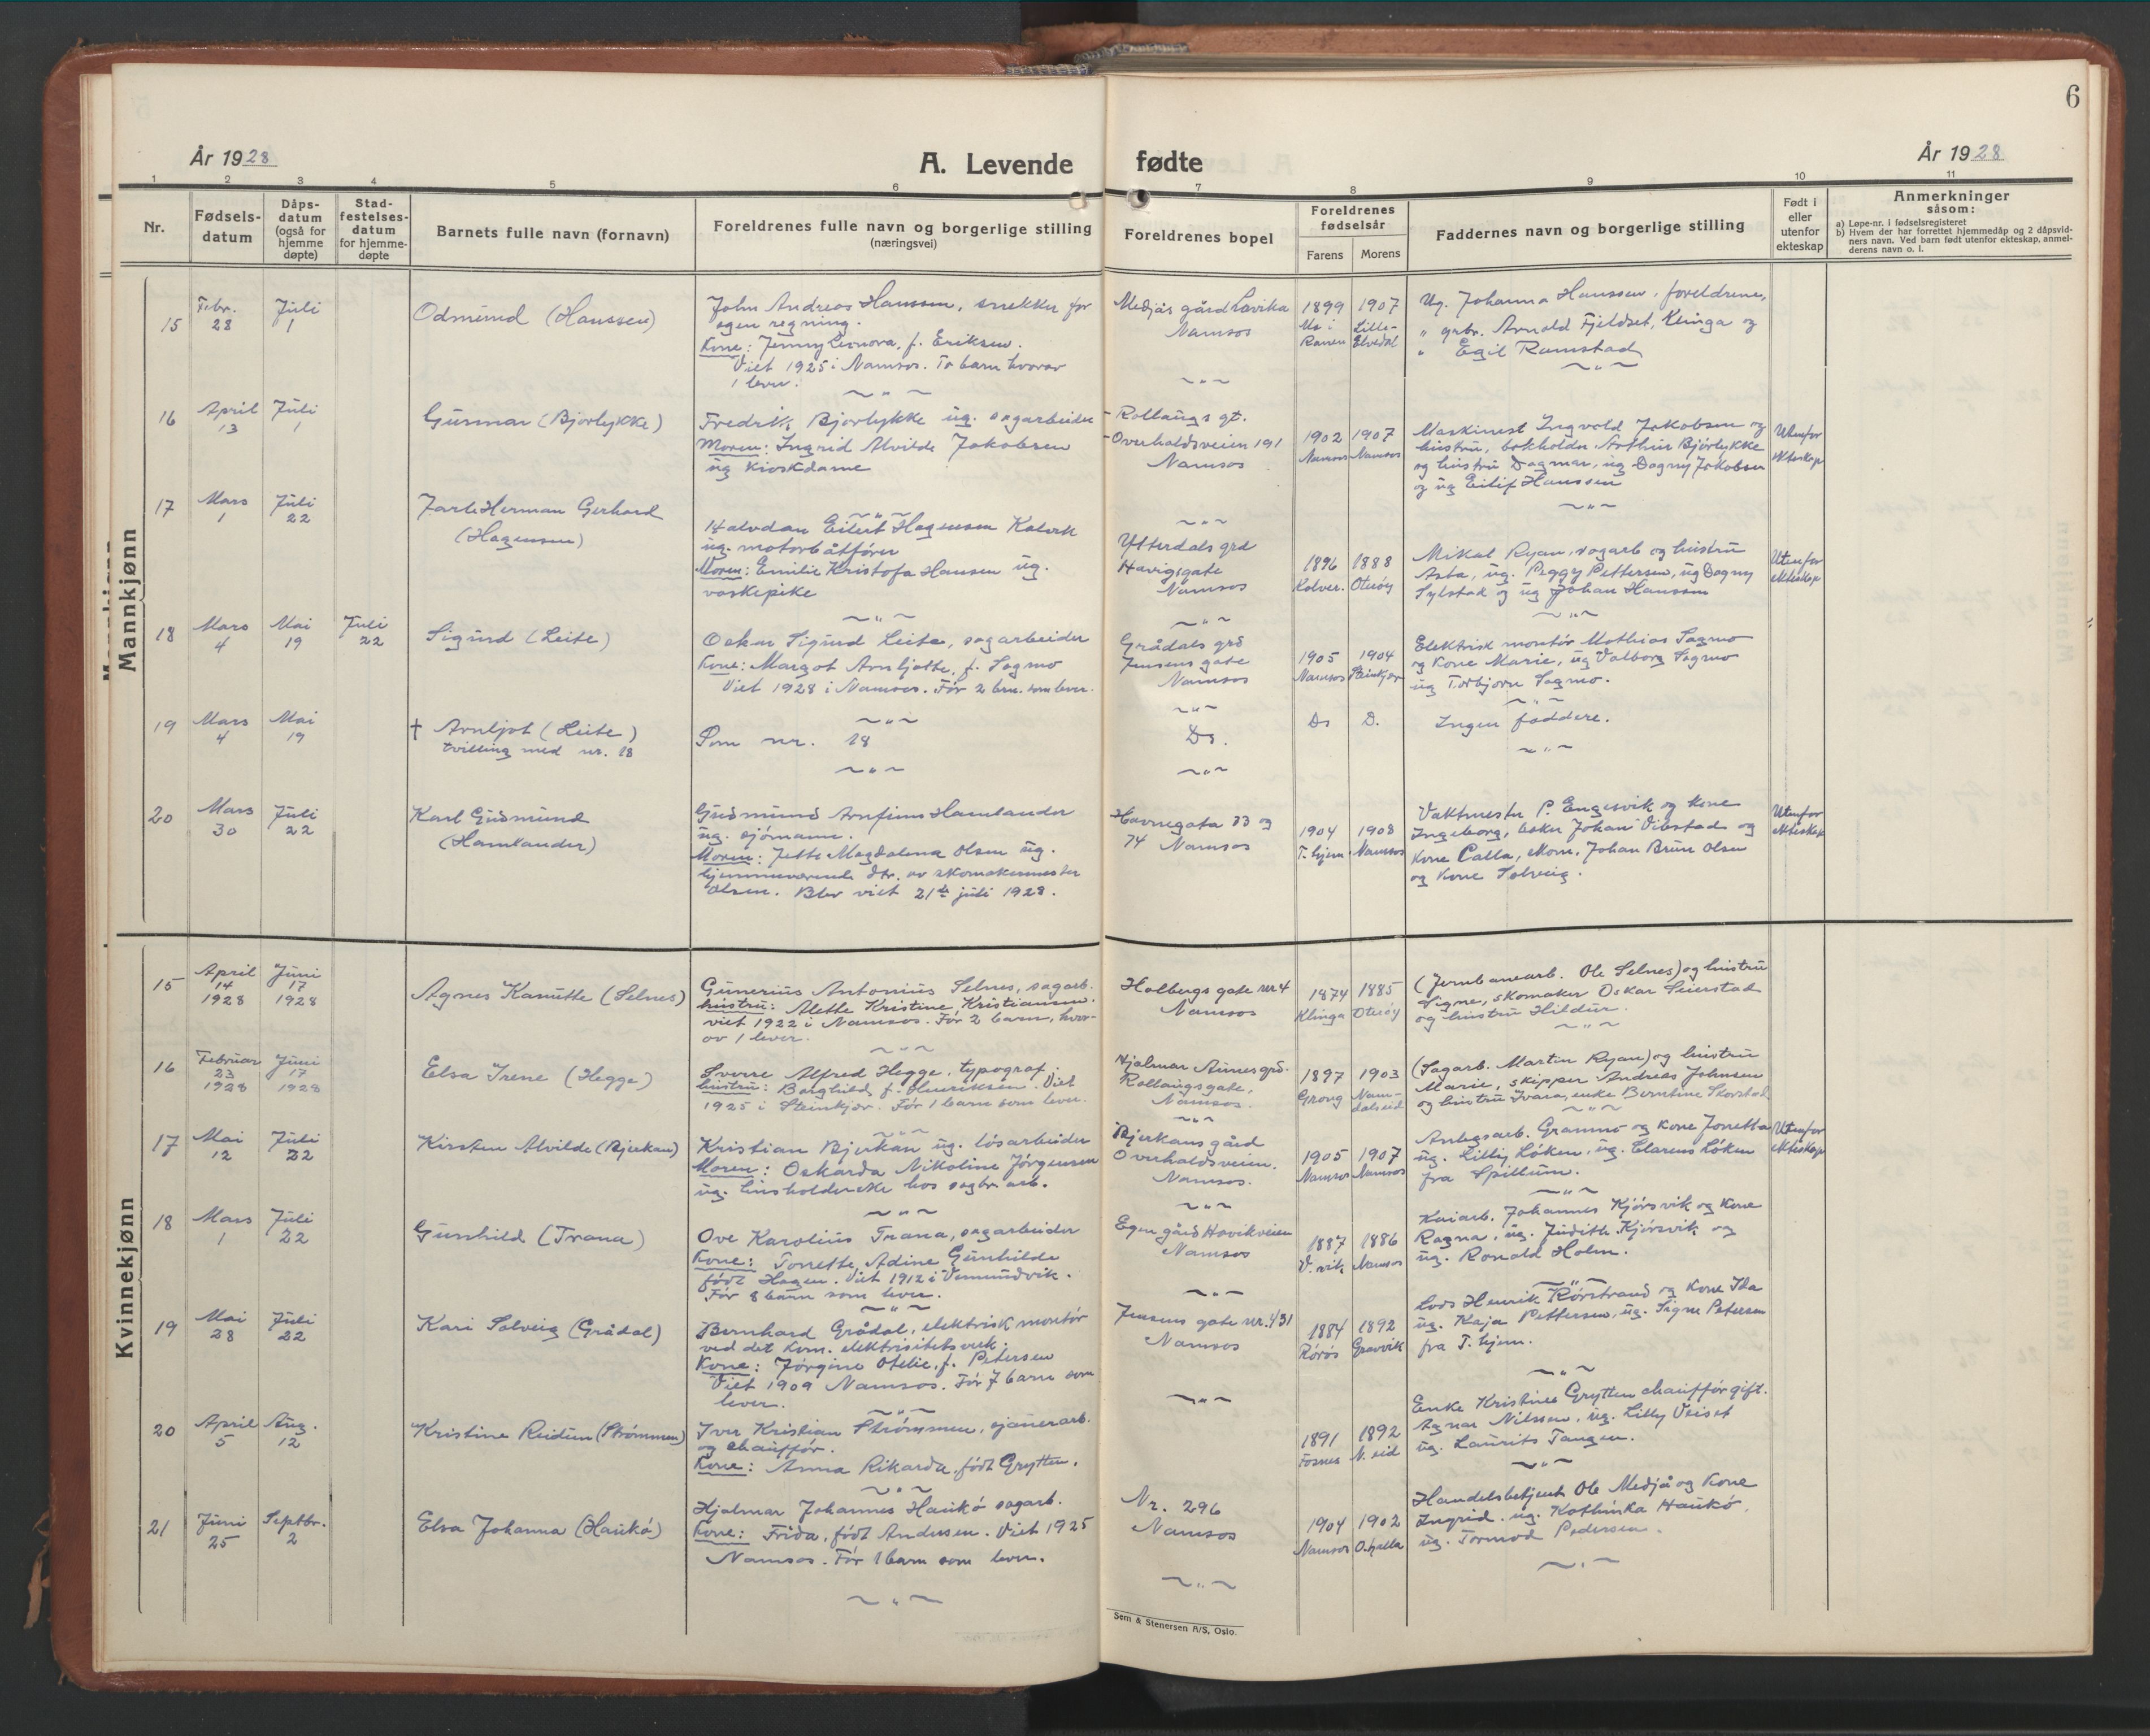 6
År 1928
A. Levende fødte
År 1928
1 2 3 4 5 6 7 8 9 10 11
Nr.
Fødsels-
datum
Dåps-
datum
(også for
hjemme
døpte)
Stad-
festelses-
datum
for hjemme-
døpte
Barnets fulle navn (fornavn)
Foreldrenes fulle navn og borgerlige stilling
(næringsvei)
Foreldrenes bopel
Foreldrenes
fødselsår
Farens Morens
Faddernes navn og borgerlige stilling
Født i
eller
utenfor
ekteskap
Anmerkninger
såsom:
a) Løpe-nr. i fødselsregisteret
b) Hvem der har forrettet hjemmedåp og 2 dåpsvid-
ners navn. Ved barn født utenfor ekteskap, anmel-
derens navn o. l.
Mannkjønn
15
Febr.
28
Juli
1
Odmund (Hanssen)
John Andreas Hanssen, snekker for
egen regning.
Kone: Jenny Leonora, f. Eriksen.
Viet 1925 i Namsos. To barn hvorav
1 lever.
Medjås gård Lavika
Namsos
1899 1907
Mo i
Ranen
Lille-
Elvedal
Ug. Johanna Hanssen, foreldrene,
" grbr. Arnold Fjeldset, Klinga og
" Egil Ramstad
16
April
13
Juli
1
Gunnar (Bjørlykke)
Fredrik Bjørlykke ug. sagarbeider
Moren: Ingrid Alvilde Jakobsen
ug kioskdame
- Rollaugs gt.
- Overhaldsveien 191
Namsos
1902 1907
Namsos Namsos
Maskinist Ingvald Jakobsen og
hustru, bokholder Arthur Bjørlykke
og hustru Dagmar, ug Dagny Jakobsen
og ug Eilif Hanssen
Utenfor
ekteskap
17
Mars
1
Juli
22
Jarle Herman Gerhard
(Hagensen)
Halvdan Eilert Hagensen Kalvik
ug. motorbåtfører
Moren: Emilie Kristofa Hansen ug.
vaskepike
Ytterdals grd
Havigsgate
Namsos
1896 1888
Kolver. Oterøy
Mikal Ryan, sagarb og hustru
Asta, ug. Peggy Pettersen, ug Dagny
Sylstad og ug Johan Hanssen
Utenfor
ekteskap
18
Mars
4
Mai
19
Juli
22
Sigurd (Leite)
Oskar Sigurd Leite, sagarbeider
Kone: Margot Arnljotte, f. Sagmo
Viet 1928 i Namsos. Før 2 brn. som lever.
Grådals grd
Jensens gate
Namsos
1905 1904
Namsos Steinkjer
Elektrisk montør Mathias Sagmo
og Kone Marie, ug Valborg Sagmo
ug Torbjørn Sagmo.
19
Mars
4
Mai
19
† Arnljot (Leite)
tvilling med nr. 18
Som nr. 18
Do.
Do D.
Ingen faddere.
20
Mars
30
Juli
22
Karl Gudmund
(Hamlander)
Gudmund Arnfinn Hamlander
ug. sjømann.
Moren: Jette Magdalena Olsen ug.
hjemmeværende dtr. av skomakermester
Olsen. Blev viet 21de juli 1928.
Havnegata 73 og
74 Namsos
1904 1908
T.hjem Namsos
Vaktmester P. Engesvik og kone
Ingeborg, Johan Vibstad og
Kone Calla, Johan Brun Olsen
og Kone Solveig.
Utenfor
ekteskap
Kvinnekjønn
15
April
14
1928
Juni
17
1928
Agnes Kanutte (Selnes)
Gunerius Antonius Selnes, sagarb.
hustru: Alette Kristine Kristiansen.
viet 1922 i Namsos. Før 2 barn, hvor-
av 1 lever.
Holbergs gate nr 4
Namsos
1874 1885
Klinga Oterøy
(Jernbanearb. Ole Selnes) og hustru
Signe, skomaker Oskar Seierstad
og hustru Hildur.
16
Februar
23
1928
Juni
17
1928
Elsa Irene (Hegge)
Sverre Alfred Hegge, typograf.
hustru: Borghild, f. Henriksen. Viet
1925 i Steinkjer. Før 1 barn som lever.
Hjalmar Aunes grd.
Rollaugsgate,
Namsos.
1897 1903
Grong Nam-
dalseid
(Sagarb. Martin Ryan) og hustru
Marie, skipper Andreas Johnsen
og hustru Ivara, enke Berntine Skorstad
17
Mai
12
Juli
22
Kirsten Alvilde (Bjerkan)
Kristian Bjerkan ug. løsarbeider
Moren: Oskarda Nikoline Jørgensen
ug. husholderske hos sagbr. arb.
Bjerkans gård
Overhaldsveien.
Namsos.
1905 1907
Namsos Namsos
Anlegsarb. Grannø og kone Jonetta
ug. Lilly Løken, ug. Clarens Løken
fra Spillum.
Utenfor
ekteskap
18
Mars
1
Juli
22
Gunhild (Trana)
Ove Karolius Trana, sagarbeider
Kone: Tonette, Adine Gunhilde
født Hagen. Viet 1912 i Vemundvik.
Før 8 barn som lever.
Egen gård Havikveien
Namsos
1887 1886
V. vik Namsos
Kaiarb. Johannes Kjørsvik og Kone
Ragna, ug. Judith Kjørsvik og
ug. Ronald Holm.
19
Mai
28
Juli
22
Kari Solveig (Grådal)
Bernhard Grådal, elektrisk montør
ved det Kom. elektrisitetsverk.
Kone: Jørgine Otelie, f. Petersen
Viet 1909 Namsos. Før 7 barn som
lever.
Jensens gate nr. 431
Namsos
1884 1892
Rørøs Gravvik
Lods Henrik Rørstrand og Kone Ida
ug. Kaja Pettersen, ug. Signe Petersen
fra T.hjem.
20
April
5
Aug.
12
Kristine Reidun (Strømmen)
Iver Kristian Strømmen, sjauerarb.
og chauffør.
Kone: Anna Rikarda, født Grytten.
1891 1892
Fosnes N. eid
Enke Kristine Grytten chauffør gift.
Agnar Nilssen, ug. Lilly Veiset
ug. Laurits Tangen.
21
Juni
25
Septbr.
2
Elsa Johanna (Haukø)
Hjalmar Johannes Haukø sagarb.
Kone: Frida, født Andersen. Viet 1925
Namsos. Før 1 barn som lever.
Nr. 296
Namsos
1904 1902
Namsos O.halla
Handelsbetjent Ole Medjå og Kone
Ingrid. ug. Kathinka Haukø,
ug. Tormod Pedersen.
Sem & Stenersen A/S, Oslo.